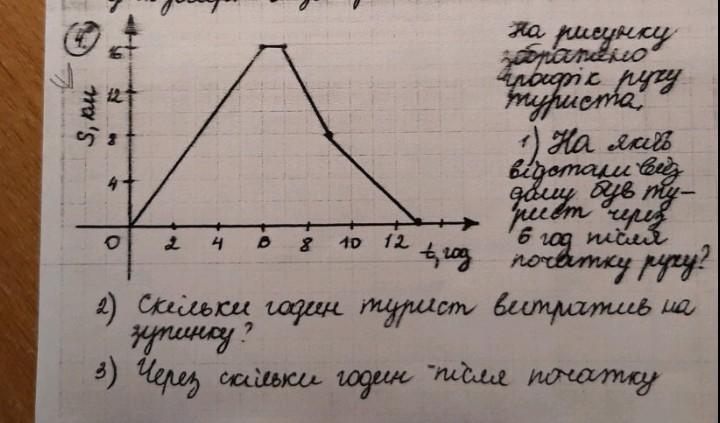 4.
S, км
16
12
8
4
0 2 4 6 8 10 12 t, год
На рисунку
зображено
графік руху
туриста.
1) На якій
відстані від
дому був ту-
рист через
6 год після
початку руху?
2) Скільки годин турист витратив на
зупинку?
3) Через скільки годин після початку